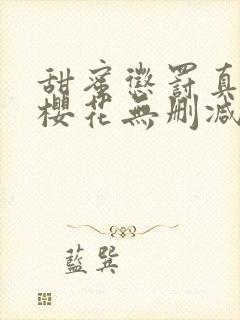 甜蜜懲罰真
櫻花無刪減
藍巽